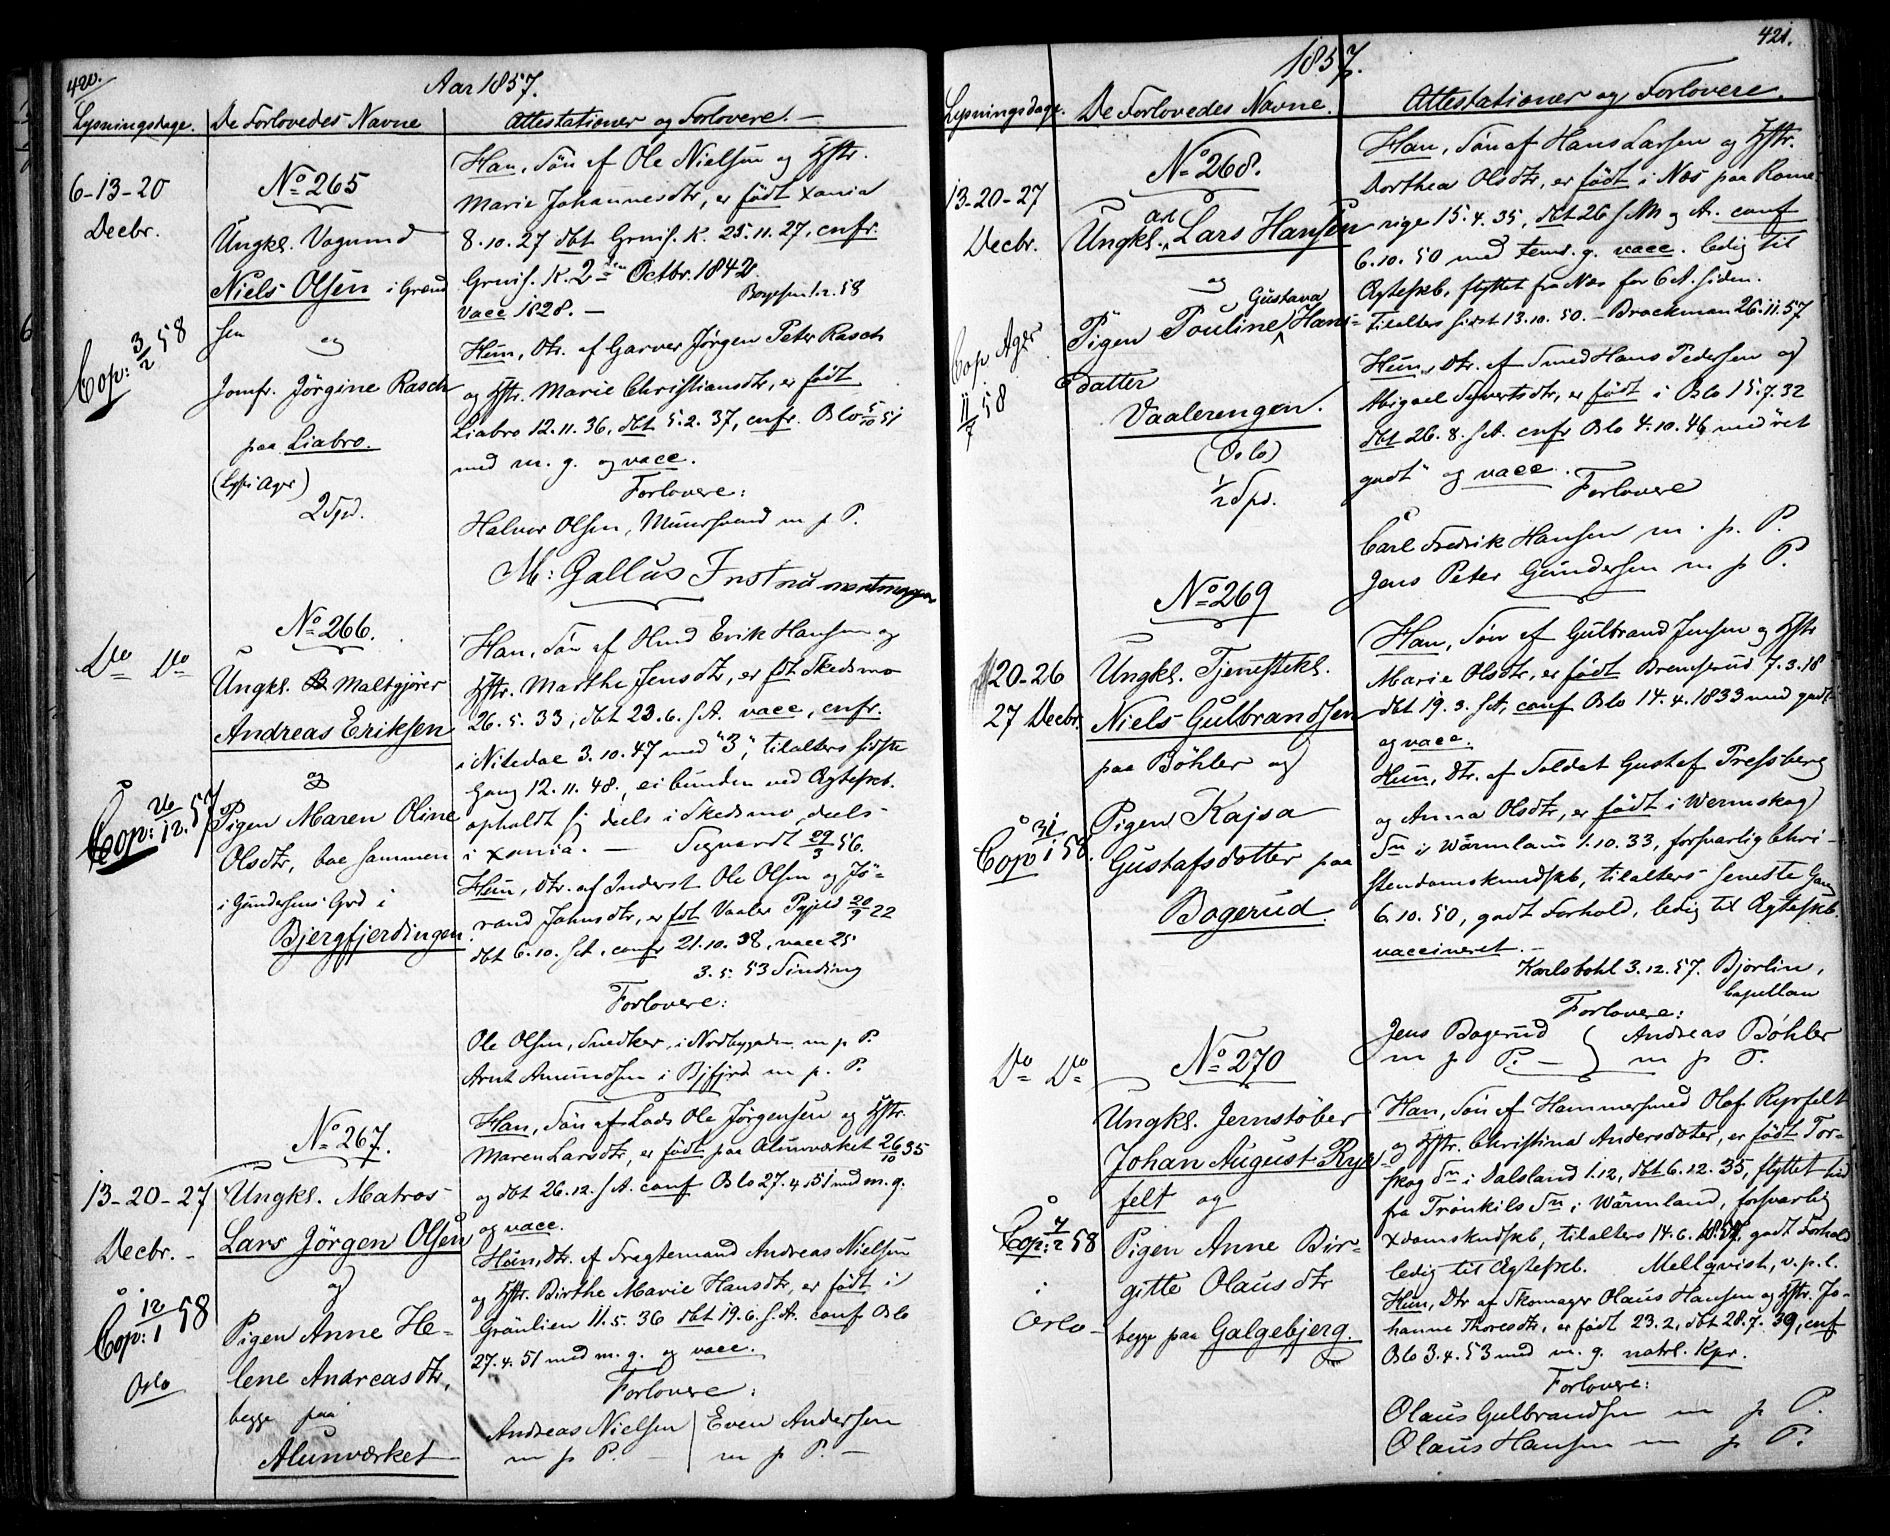 420.
Aar 1857.
Lysningsdage. De Forlovedes Navne Attestationer og Forlovere. —
6-13-20
Decbr.
Cop: 3/2 58
No 265
Ungkl. Vognmd
Niels Olsen i Grønd
sen
og
Jomfr. Jörgine Rasch
paa Liabro.
(Lyst i Ager)
2 Spd.
Han, Sön af Ole Nielsen og Hstr.
Marie Johannesdtr, er födt Xania
8.10.27 dbt Grnls. K. 25.11.27, cnfr.
Grnls. K. 2den Octbr. 1842.
vacc 1828. —
Hun, Dtr. af Garver Jörgen Peter Rasch
og Hstr. Marie Christiansdtr, er födt
Liabro 12.11.36, dbt 5.2.37, cnfr. Oslo 5/10 51
med m. g. og vacc.
Forlovere:
Halvor Olsen, m p P.
M: Gallus
Do Do
Cop: 26/12. 57
No 266.
Ungkl. Maltgjører
Andreas Eriksen
og
Pigen Maren Oline
Olsdtr, bae sammen
i Gundersens Grd i
Bjergfjerdingen
Han, Sön af Hmd Erik Hansen og
Hstr. Marthe Jensdtr, er fdt Skedsmo
26.5.33, dbt 23.6. s.A. vacc, cnfr.
i Nitedal 3.10.47 med "3", tilalters sidste
Gang 12.11.48, ei bunden ved Ægteskb.
opholdt sig deels i Skedsmo, deels
i Xania. — Sigvardt 29/3 56.
Hun, dtr. af Inderst Ole Olsen og Jö-
rand Jahnsdtr, er fdt Vaaler 20/9 22
dbt 6.10. s.A. confr 21.10.38, vacc 25
3.5.53 Sinding
Forlovere:
Ole Olsen, Snedker, i Nordbygaden m p P.
Arnt Amundsen i Bjfjrd m p. P.
13-20-27
Decbr. -
Cop: 12/1 58
Oslo
No 267.
Ungkl. Matros
Lars Jörgen Olsen
og
Pigen Anne He-
lene Andreasdtr,
begge paa
Alunværket
Han, Sön af Lods Ole Jörgensen og Hstr.
Maren Larsdtr, er födt paa Alunværket 26/10 35
og dbt 26.12. s.A. conf Oslo 27.4.51 med m. g.
og vacc.
Hun, dtr. af Fragtemand Andreas Nielsen
og Hstr. Birthe Marie Hansdtr, er födt i
Grönlien 11.5.36 dbt 19.6. s.A. conf Oslo
27.4.51 med m. g. og vacc.
Forlovere:
Andreas Nielsen | Even Andersen
m p P. — m p P. —
421.
1857.
Lysningsdage. De Forlovedes Navne. Attestationer og Forlovere.
13-20-27
Decbr.
Cop Ager
11/7 58
No 268.
Ungkl. Lars Hansen
og
Gustava
Pigen Pouline Hans-
datter
Vaalerengen.
(Oslo)
1/2 Spd.
Han, Sön af Hans Larsen og Hstr.
Dorthea Olsdtr, er födt i Næs paa Rome-
rige 15.4.35, dbt 26 s. M og A. conf
6.10.50 med tems. g. vacc. ledig til
Ægteskb, flyttet fra Næs for 6 A. siden.
Tilalters sidst 13.10.50. — Brockman 26.11.57
Hun, Dtr. af Smed Hans Pedersen og
Abigael Syvertsdtr, er födt i Oslo 15.7.32
dbt 26.8. s.A. cnfr Oslo 4.10.46 med "ret
godt" og vacc.
Forlovere
Carl Fredrik Hansen m. p. P.
Jens Peter Gundersen m p P.
20-26
27 Decbr
Cop 31/1 58.
No 269
Ungkl. Tjenestekl.
Niels Gulbrandsen
paa Böhler og
Pigen Kajsa
Gustafsdotter paa
Bogerud.
Han, Sön af Gulbrand Jensen og Hstr
Marie Olsdtr, er födt Bremsrud 7.3.18
dbt 19.3. s.A, conf Oslo 14.4.1833 med godt
og vacc.
Hun, Dtr. af Soldat Gustaf Fressberg
og Anna Olsdtr, er födt i Wermskog
Sn i Wärmland 1.10.33, forsvarlig Chri-
stendomskundskb, tilalters seneste Gang
6.10.50, godt Forhold, ledig til Ægteskb.
vaccineret. —
Karlsbohl 3.12.57. Björlin,
Capellan
Forlovere:
Jens Bogerud } Andreas Böhler
m p P. — m p P.
Do Do
Cop: 7/2 58
i
Oslo —
No 270
Ungkl. Jernstöber
Johan August Ryr
felt og
Pigen Anne Bir-
gitte Olausdtr
begge paa Galgebjerg.
Han, Sön af Hammersmed Olof Ryrfelt
og Hstr. Christina Andersdoter, er födt Tor-
skog Sn i Dalsland 1.12, dbt 6.12.35, flyttet hid
fra Trönkils Sn i Wärmland, forsvarlig
Xdomskndskb, tilalters 14.6. godt Forhold
ledig til Ægteskb. Mellqvist, v.p.l.
Hun, Dtr af Skomager Olaus Hansen og Hstr. Jo-
hanne Thoresdtr, er födt 23.2, dbt 28.7.39, cnf
Oslo 3.4.53 med m. g. natrl. Kpr.
Forlovere:
Olaus Gulbrandsen m p P.
Olaus Hansen m p P.